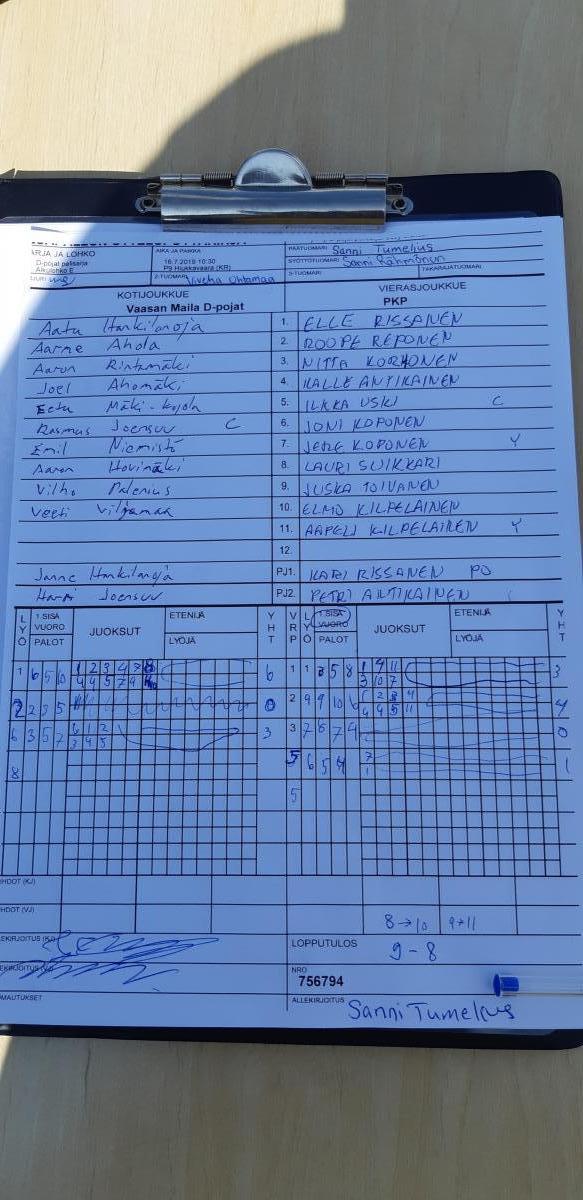 ARJA JA LOHKO
D-pojat palisarja
Alkulohko E
AIKA JA PAIKKA
16.7.2019 10:30
P9 Hiukkavaara (KR)
2-TUOMARI
PÄÄTUOMARI Sanni Tumelius
SYÖTTÖTUOMARI Sanni
3-TUOMARI
TAKARAJATUOMARI
KOTIJOUKKUE
Vaasan Maila D-pojat
VIERASJOUKKUE
PKP
Aatu Hankilanoja
1. ELLE RISSANEN
Aarne Ahola
2. ROOPE REPONEN
Aaron Rintamäki
3. NIITTA KORHONEN
Joel Ahomäki
4. KALLE ANTIKAINEN
Eetu Mäki-Kojola
5. ILKKA USKI C
Rasmus Joensuu C
6. JONI KOPONEN
Emil Niemistö
7. JERE KOPONEN Y
Aaron Hovinmäki
8. LAURI SUIKKARI
Vilho Palenius
9. JUSKA TOIVANEN
Veeti Viljamaa
10. ELMO KILPELÄINEN
11. AAPELI KILPELÄINEN Y
12.
Janne Hankilanoja
PJ1. KARI RISSANEN PD
Harri Joensuu
PJ2. PETRI ANTIKAINEN
LYÖ
1.SISÄ VUORO
PALOT
JUOKSUT
ETENIJÄ
LYÖJÄ
YHT
VRP
LYÖ
1.SISÄ VUORO
PALOT
JUOKSUT
ETENIJÄ
LYÖJÄ
YHT
1 6 5 10
6
1 1
5 8
3
2 2 3 5
0
2 9 9 10 6
4
6 3 5 7
3
3 7 6 7 4
0
8
5 6 5 4
7
1
1
5
HDOT (KJ)
HDOT (VJ)
8→10 9→11
EKIRJOITUS (KJ)
LOPPUTULOS
9-8
NRO
756794
OMAUTUKSET
ALLEKIRJOITUS Sanni Tumelius